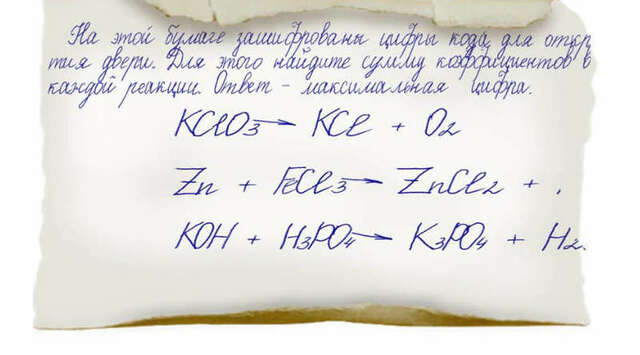 На этой бумаге зашифрованы цифры кода для откр
тия двери. Для этого найдите сумму коэффициентов в
каждой реакции. Ответ - максимальная цифра.
KClO3 → KCl + O2
Zn + FeCl3 → ZnCl2 + .
KOH + H3PO4 → K3PO4 + H2.